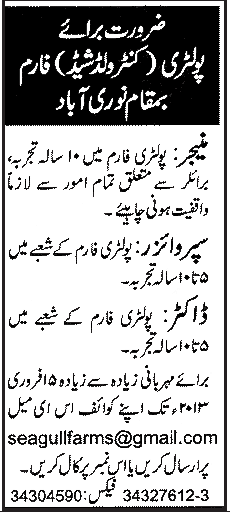 ضرورت برائے
پولٹری (کنٹرولڈشیڈ) فارم
بمقام نوری آباد
منیجر: پولٹری فارم میں ۱۰ سالہ تجربہ،
برائلر سے متعلق تمام امور سے لازماً
واقفیت ہونی چاہیئے۔
سپروائزر: پولٹری فارم کے شعبے میں
۵ تا ۱۰ سالہ تجربہ۔
ڈاکٹر: پولٹری فارم کے شعبے میں
۵ تا ۱۰ سالہ تجربہ۔
برائے مہربانی زیادہ سے زیادہ ۱۵ فروری
۲۰۱۳ء تک اپنے کوائف اس ای میل
seagullfarms@gmail.com
پر ارسال کریں یا اس نمبر پر کال کریں۔
34327612-3 فیکس: 34304590